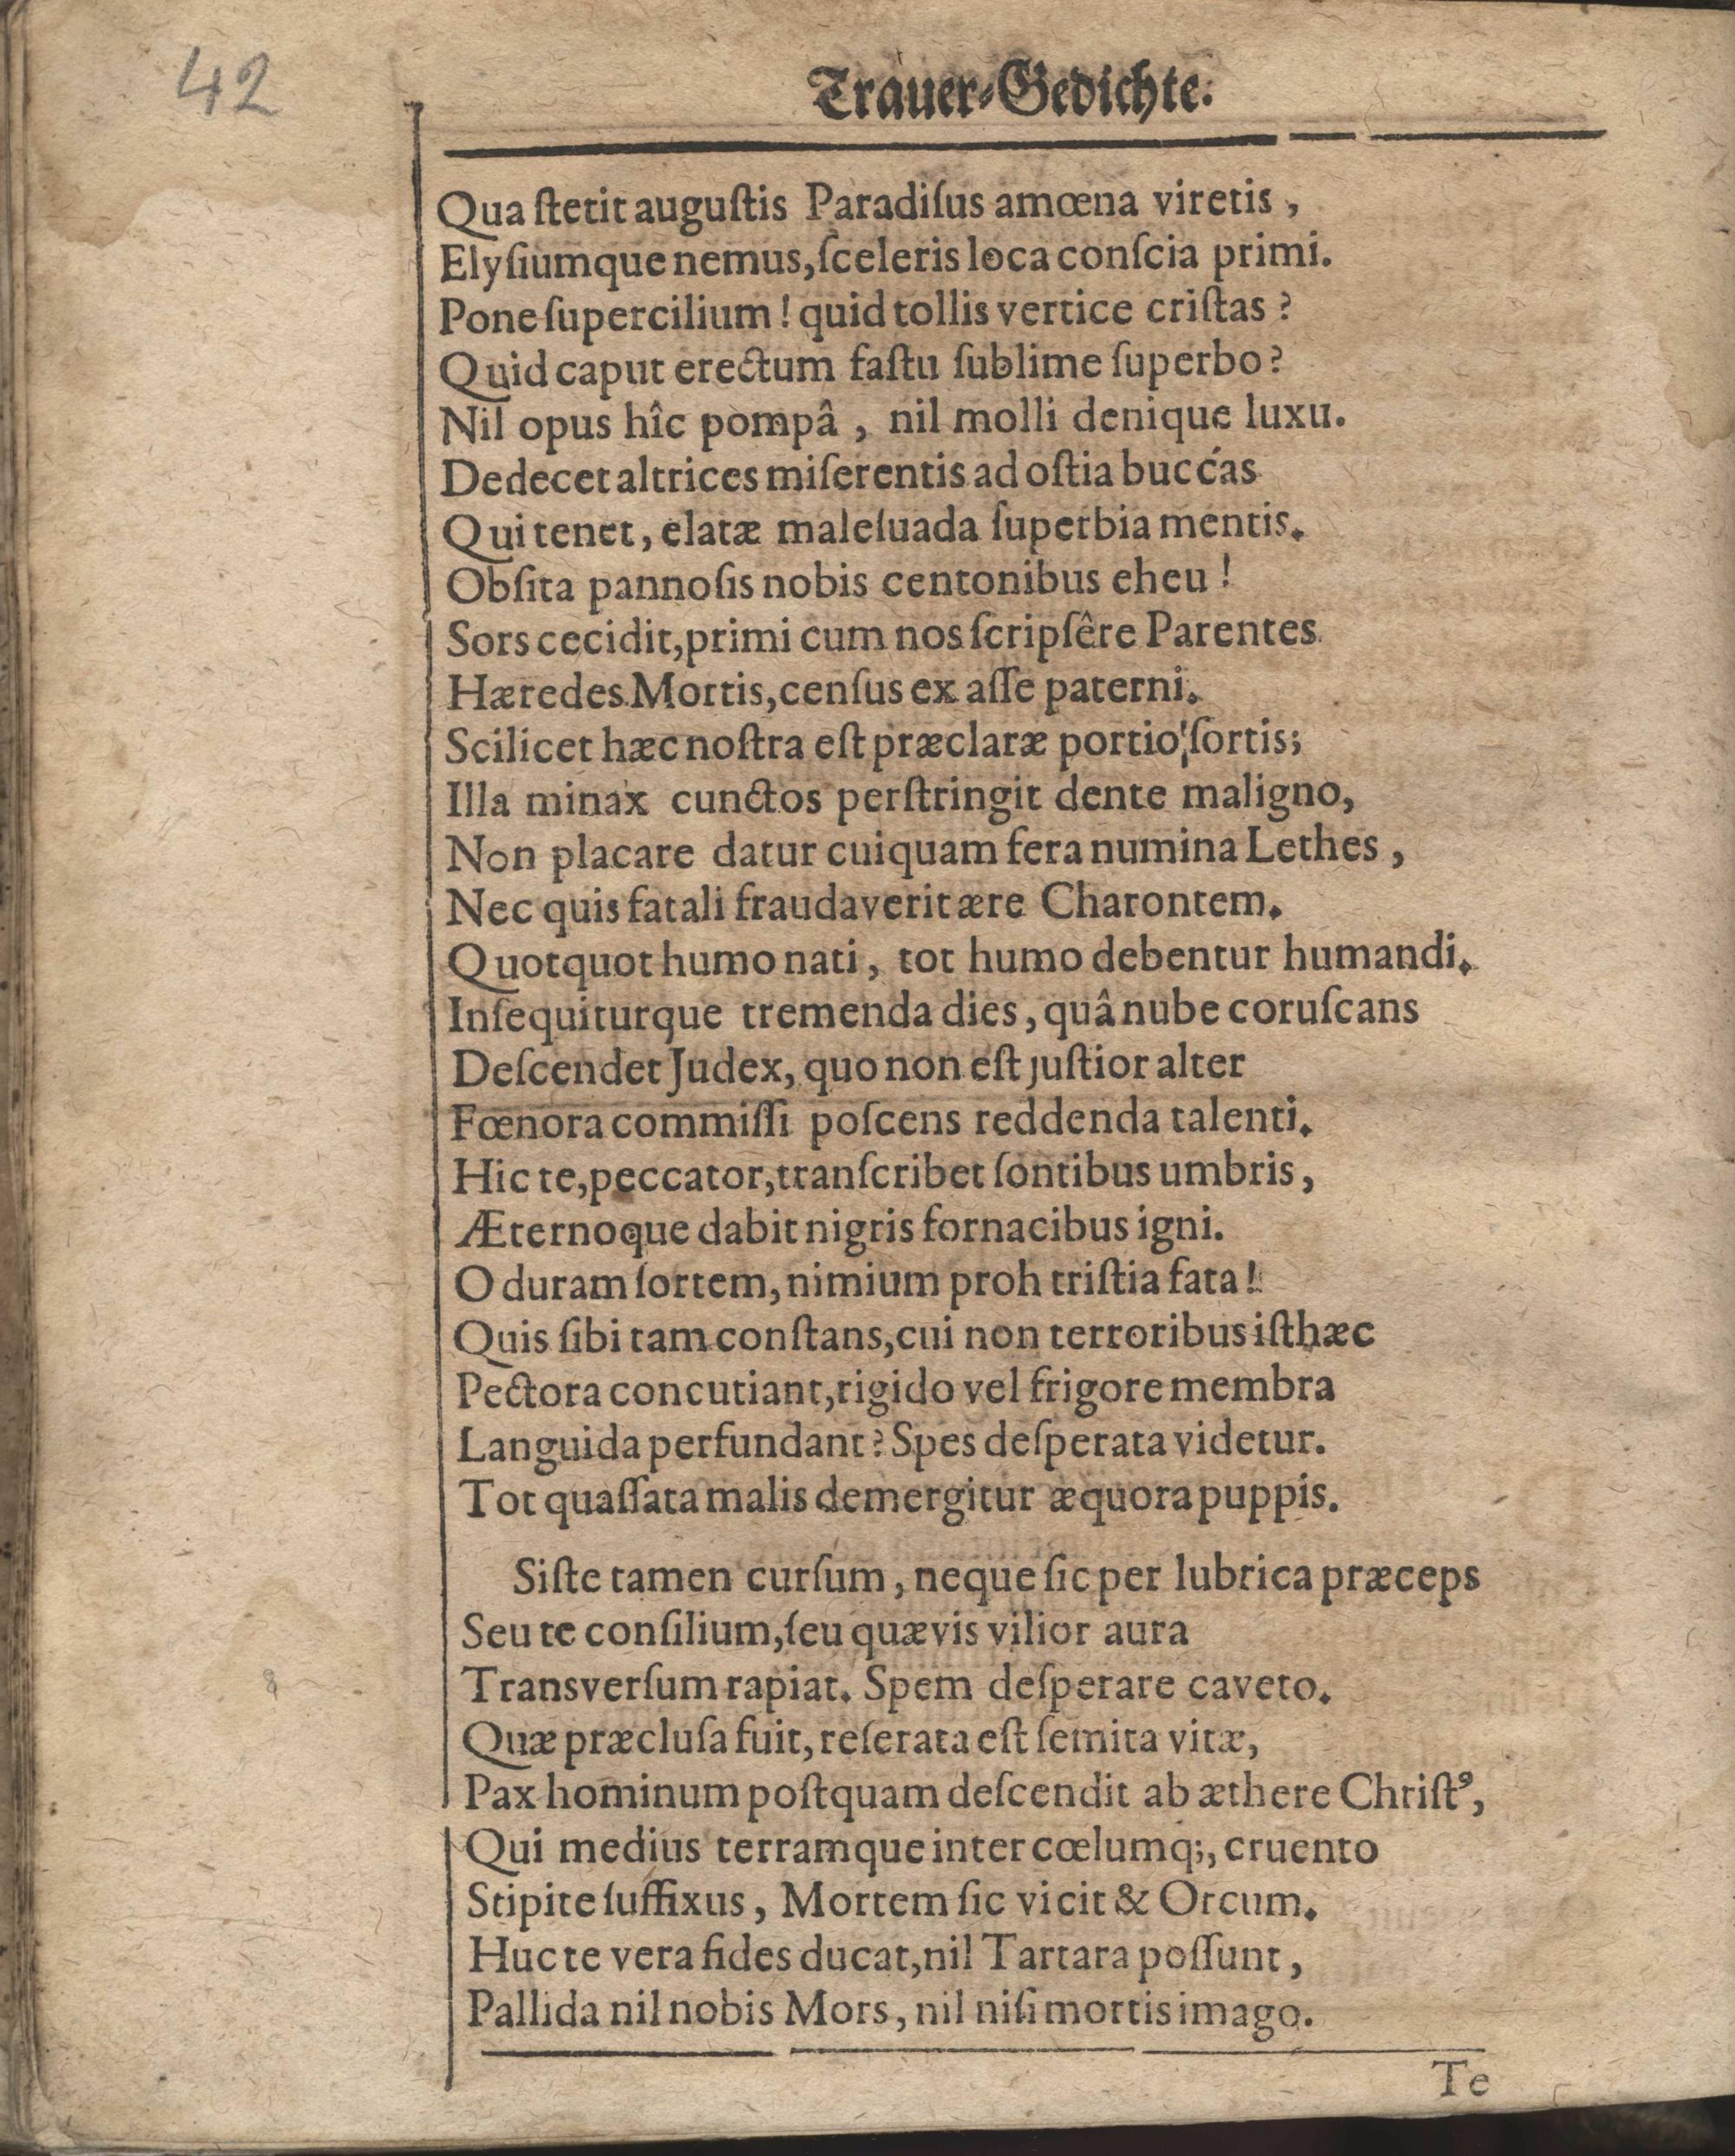 42
Trauer-Gedichte.
Qua ſtetit auguſtis Paradiſus amœna viretis,
Elyſiumque nemus, ſceleris loca conſcia primi.
Pone ſupercilium! quid tollis vertice criſtas?
Quid caput erectum faſtu ſublime ſuperbo?
Nil opus hîc pompâ, nil molli denique luxu.
Dedecet altrices miſerentis ad oſtia buccás
Qui tenet, elatæ maleſuada ſuperbia mentis.
Obſita pannoſis nobis centonibus eheu!
Sors cecidit, primi cum nos ſcripſêre Parentes
Hæredes Mortis, cenſus ex aſſe paterni.
Scilicet hæc noſtra eſt præclaræ portio ſortis;
Illa minax cunctos perſtringit dente maligno,
Non placare datur cuiquam fera numina Lethes,
Nec quis fatali fraudaverit ære Charontem.
Quotquot humo nati, tot humo debentur humandi.
Inſequiturque tremenda dies, quâ nube coruſcans
Deſcendet Judex, quo non eſt juſtior alter
Fœnora commiſſi poſcens reddenda talenti.
Hic te, peccator, tranſcribet ſontibus umbris,
Æternoque dabit nigris fornacibus igni.
O duram ſortem, nimium proh triſtia fata!
Quis ſibi tam conſtans, cui non terroribus iſthæc
Pectora concutiant, rigido vel frigore membra
Languida perfundant? Spes deſperata videtur.
Tot quaſſata malis demergitur æquora puppis.
Siſte tamen curſum, neque ſic per lubrica præceps
Seu te conſilium, ſeu quævis vilior aura
Transverſum rapiat. Spem deſperare caveto.
Quæ præcluſa fuit, reſerata eſt ſemita vitæ,
Pax hominum poſtquam deſcendit ab æthere Chriſtꝰ,
Qui medius terramque inter cœlumq;, cruento
Stipite ſuffixus, Mortem ſic vicit & Orcum.
Huc te vera fides ducat, nil Tartara poſſunt,
Pallida nil nobis Mors, nil niſi mortis imago.
Te